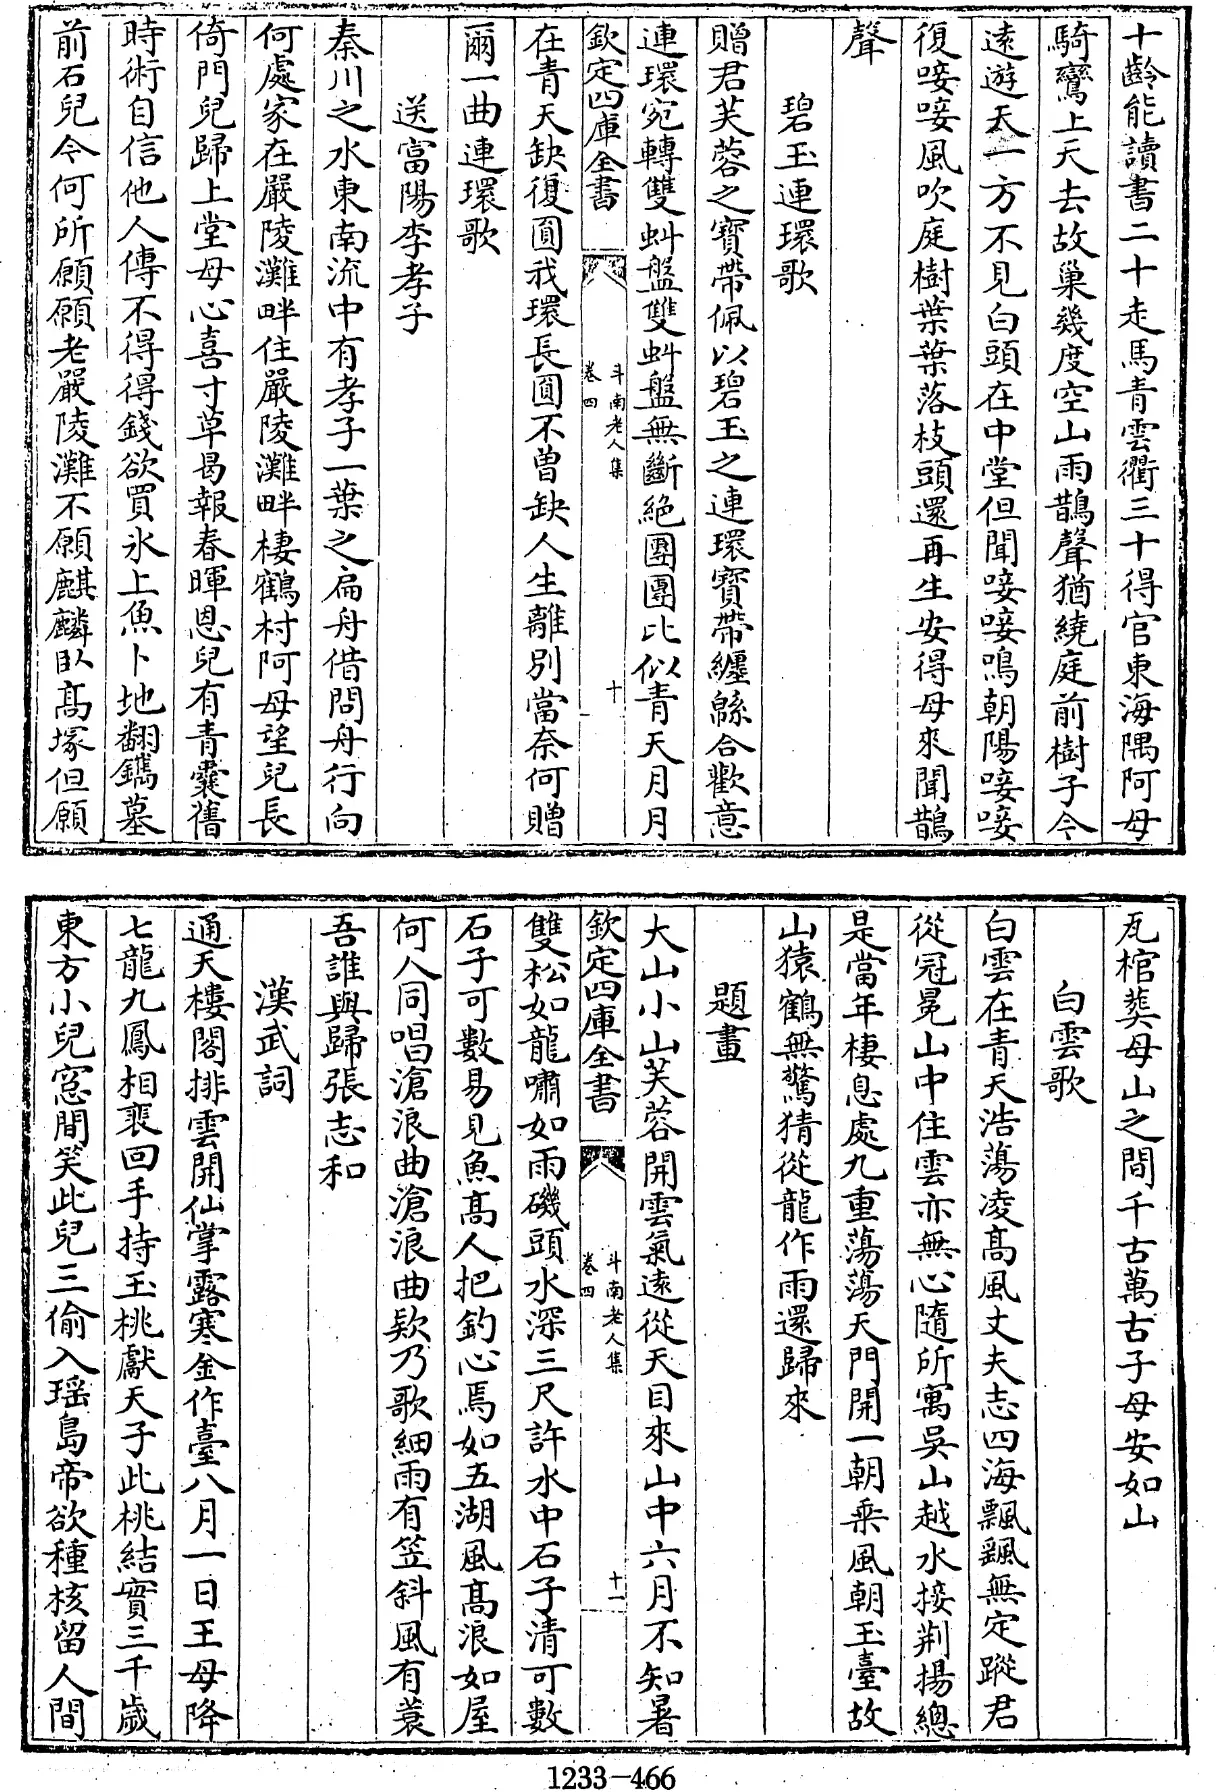 十齡能讀書二十走馬青雲衢三十得官東海隅阿母
騎鸞上天去故巢幾度空山雨鵲聲猶繞庭前樹子今
遠遊天一方不見白頭在中堂但聞唼唼鳴朝陽唼唼
復唼唼風吹庭樹葉葉落枝頭還再生安得母來聞鵲
聲
碧玉連環歌
贈君芙蓉之寶帶佩以碧玉之連環寶帶纏緜合歡意
連環宛轉雙虯盤雙虯盤無斷絶團團比似青天月月
欽定四庫全書
斗南老人集
卷四
十
在青天缺復圓我環長圓不曾缺人生離别當奈何贈
爾一曲連環歌
送富陽李孝子
秦川之水東南流中有孝子一葉之扁舟借問舟行向
何處家在嚴陵灘畔住嚴陵灘畔棲鶴村阿母望兒長
倚門兒歸上堂母心喜寸草曷報春暉恩兒有青囊舊
時術自信他人傳不得得錢欲買氷上魚卜地翻鐫墓
前石兒今何所願願老嚴陵灘不願麒麟臥髙塚但願
瓦棺葬母山之間千古萬古子母安如山
白雲歌
白雲在青天浩蕩凌髙風丈夫志四海飄飄無定蹤君
從冠冕山中住雲亦無心隨所寓吳山越水接荆揚總
是當年棲息處九重蕩蕩天門開一朝乗風朝玉臺故
山猿鶴無驚猜從龍作雨還歸來
題畫
大山小山芙蓉開雲氣遠從天目來山中六月不知暑
欽定四庫全書
斗南老人集
卷四
十一
雙松如龍嘯如雨磯頭水深三尺許水中石子清可數
石子可數易見魚髙人把釣心焉如五湖風髙浪如屋
何人同唱滄浪曲滄浪曲欵乃歌細雨有笠斜風有蓑
吾誰與歸張志和
漢武詞
通天樓閣排雲開仙掌露寒金作臺八月一日王母降
七龍九鳳相裵回手持玉桃獻天子此桃結實三千歲
東方小兒窓間笑此兒三偷入瑶島帝欲種核留人間
1233-466